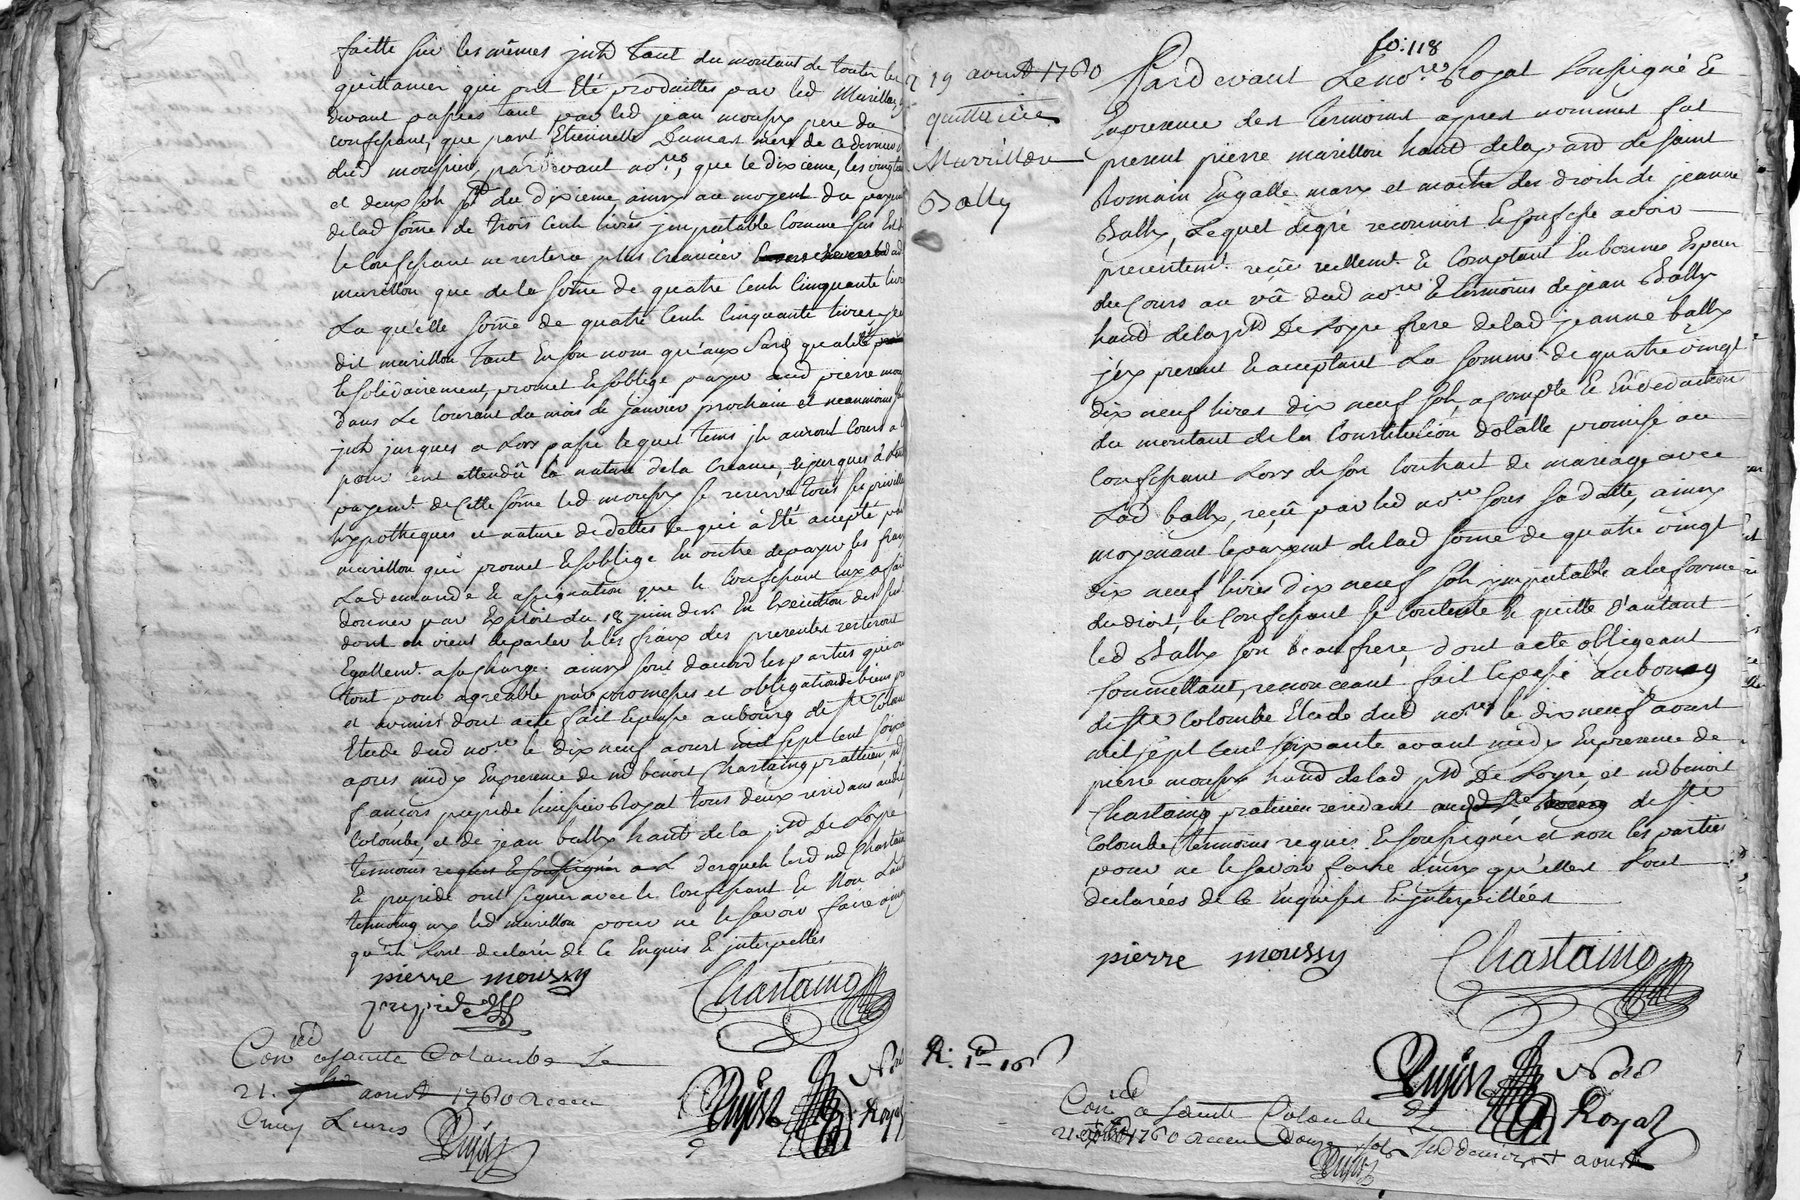 faitte sur les mêmes jnts tant du montant de toutes les
quittances qui ont Eté produittes par led Marillon,
devant passées tant par led jean moussy pere du
confessant, que par Etiennette Dumas mere de ce dernier
dud moussy, pardevant nore, que le dixieme, les vingt
et deux sols pd du dixieme, ainsy au moyent du payemt
de lad some de trois cents livres jmputable comme sus Est
le Confessant ne restera plus Creancier dud
marillon que de la some de quatre Cents Cinquante livres
La qu'elle some de quatre Cents Cinquante livres, led
dit marillon tant En son nom qu'aux qualités
et solidairement, promet et s'oblige payer aud pierre moussy
dans Le Courant du mois de janvier prochain et neanmoins
jnts jusques a Lors passé lequel tems jls auront Cours
attendû la nature de la Creance, et jusques à
payemt de Cette some led moussy se reserve tous ses privileges
hypotheques et nature de dettes ce qui à Eté accepté par
marillon qui promet et s'oblige En outre de payer les frais
La demande et assignation que le Confessant lux a fait
donner par Exploit du 18 juin der. En Execution des
dont on vient de parler et les frais des presentes resteront
Egallemt a sa charge. ainsy sont d'accord les parties qui ont
tout pour agreable par promesses et obligation de biens
et soumis dont acte fait et passé au bourg de Ste Colombe
Etude dud nore le dix neuf aoust mil sept cent soixante
apres midy En presence de md benoit Chastaing praticien, md
françois prejride huissier Royal tous deux residans aud Ste
Colombe, et de jean bally habt de la psse De Loyre
temoins requis desquels lesd md Chastaing
et prejride ont signer avec le Confessant Et Non L'autre
temoing ny led marillon pour ne le savoir faire ainsy
qu'ils l'ont declarés de Ce Enquis Et jnterpellés
pierre moussy
prejride
Chastaing
Conlé a Sainte Colombe Le
21. aoust 1760 Receu
Cinq Livres
Pujin
Pujin Nore
Royal
fo: 118
19 aoust 1760
quittance
Marrillon
Bally
Pardevant Le nore Royal soussigné Et
En presence des temoins apres nommes fut
present pierre marillon habt de la psse de saint
Romain En galle mary et maitre des droits de jeanne
Bally, Lequel de gré reconnoit Et confesse avoir
presentemt reçû reellemt Et Comptant En bonnes Especes
du Cours au vû dud nore Et temoins de jean Bally
habt de la psse De Loyre frere de lad jeanne bally
jcy present Et acceptant La somme de quatre vingt
dix neuf livres dix neuf sols, a compte Et En deduction
du montant de la Constitution dotalle promise au
Confessant Lors de son Contrait de mariage avec
Lad bally, reçû par led nore sous sa datte, ainsy
moyenant le payemt de lad some de quatre vingt
dix neuf livres dix neuf sols jmputable a la forme
du droit, le Confessant se Contente Et quitte d'autant
led Bally son beau frere, dont acte obligeant
soumettant, renonceant fait Et passé au bourg
de Ste Colombe Etude dud nore le dix neuf aoust
mil sept cent soixante avant midy En presence de
pierre moussy habt de lad psse De Loyre, et md benoit
Chastaing praticien residant aud de Ste
Colombe temoins requis Et soussignés et non les parties
pour ne le savoir faire ainsy qu'elles L'ont
declarées de Ce Enquises Et jnterpellées
pierre moussy
Chastaing
Pujin Nore
Royal
Conlé a Sainte Colombe Le
21 1760 Receu Douze sols six deniers + aoust
Pujin